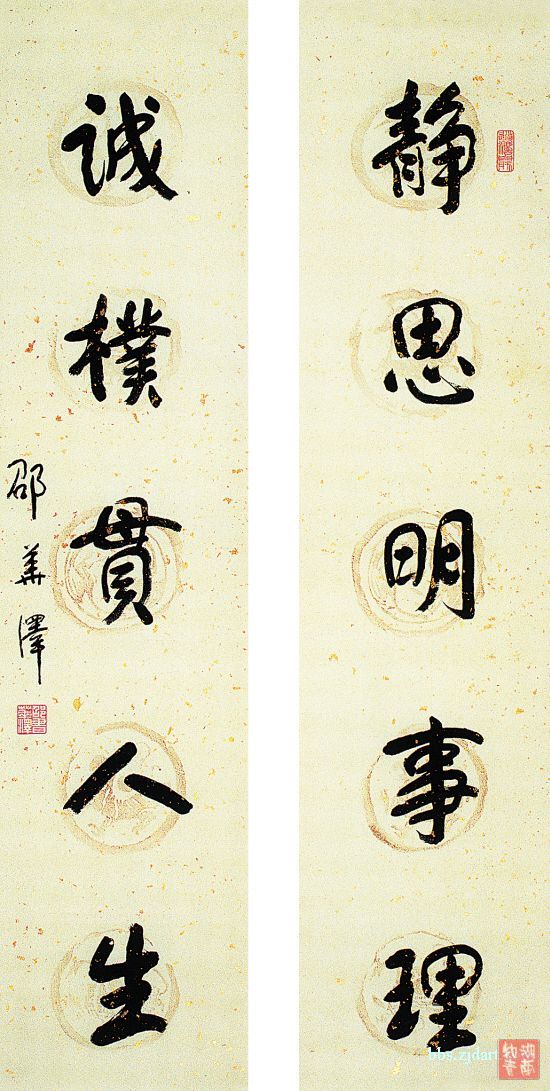 静思明事理
誠樸貫人生
邵華澤
bbs.zjdart